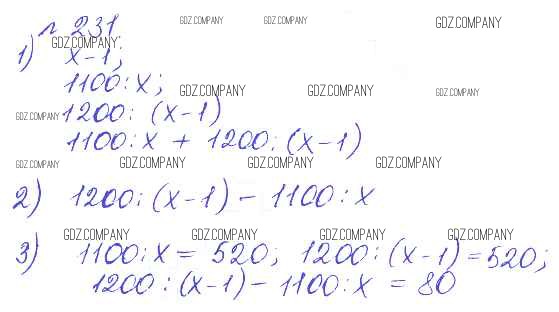 GDZ.COMPANY GDZ.COMPANY GDZ.COMPANY
№ 231
GDZ.COMPANY
1) x-1;
1100:x;
GDZ.COMPANY GDZ.COMPANY GDZ.COMPANY
GDZ.COMPANY
1200: (x-1)
1100:x + 1200:(x-1)
GDZ.COMPANY GDZ.COMPANY GDZ.COMPANY GDZ.COMPANY
2) 1200:(x-1) - 1100:x
GDZ.COMPANY GDZ.COMPANY GDZ.COMPANY GDZ.COMPANY
3) 1100:x = 520; 1200:(x-1)=520;
1200:(x-1) - 1100:x = 80